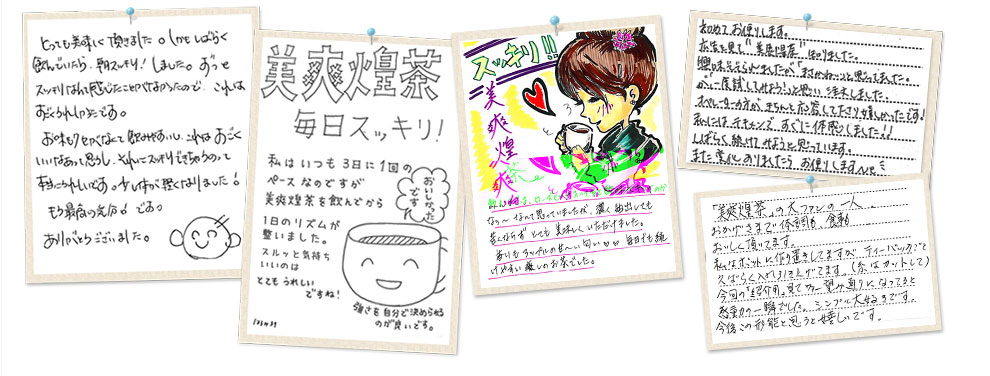 とっても美味しく頂きました。しかもしばらく
飲んでいたら、毎日スッキリ！しました。ずっと
スッキリなんて感じたことがなかったので、これは
すごくうれしかったです。
お味もクセがなくて飲みやすいし、これはすごく
いいなあって思うし、それにスッキリできちゃうので
本当にうれしいです。少し体が軽くなりました！
もう最高の気分！です。
ありがとうございました。
美爽煌茶
毎日スッキリ！
私はいつも3日に1回の
ペースなのですが
美爽煌茶を飲んでから
1日のリズムが
整いました。
スルッと気持ち
いいのは
とてもうれしい
ですね！
おいしかった
です
強さを自分で決められる
のが良いです。
スッキリ!!
美爽煌茶
なぁ〜なんて思っていましたが、濃く抽出しても
苦くならず とても美味しくいただけました。
香いもアップルのせ〜い匂い 毎日でも続
けやすい癒しのお茶でした。
初めてお便りします。
広告を見て"美爽煌茶"を知りました。
興味をそそられましたが、まさかね…っと思ってました。
が、一度試してみよう！と思い注文しました。
オペレーターの方がきちんと応答して下さり嬉しかったです！
私にはテキメンで、すぐに体感しました!!
しばらく続けてみようと思っています。
また変化ありましたらお便りしますm(__)m
「美爽煌茶」の大ファンの一人…
おかげさまで体調も、食事も
おいしく頂いてます。
私はポットに作り置きしてますが、ティーバッグごと
今回の「紹介」見て
感動の一瞬でした。シンプル大好きです。
今後この形態と思うと嬉しいです。